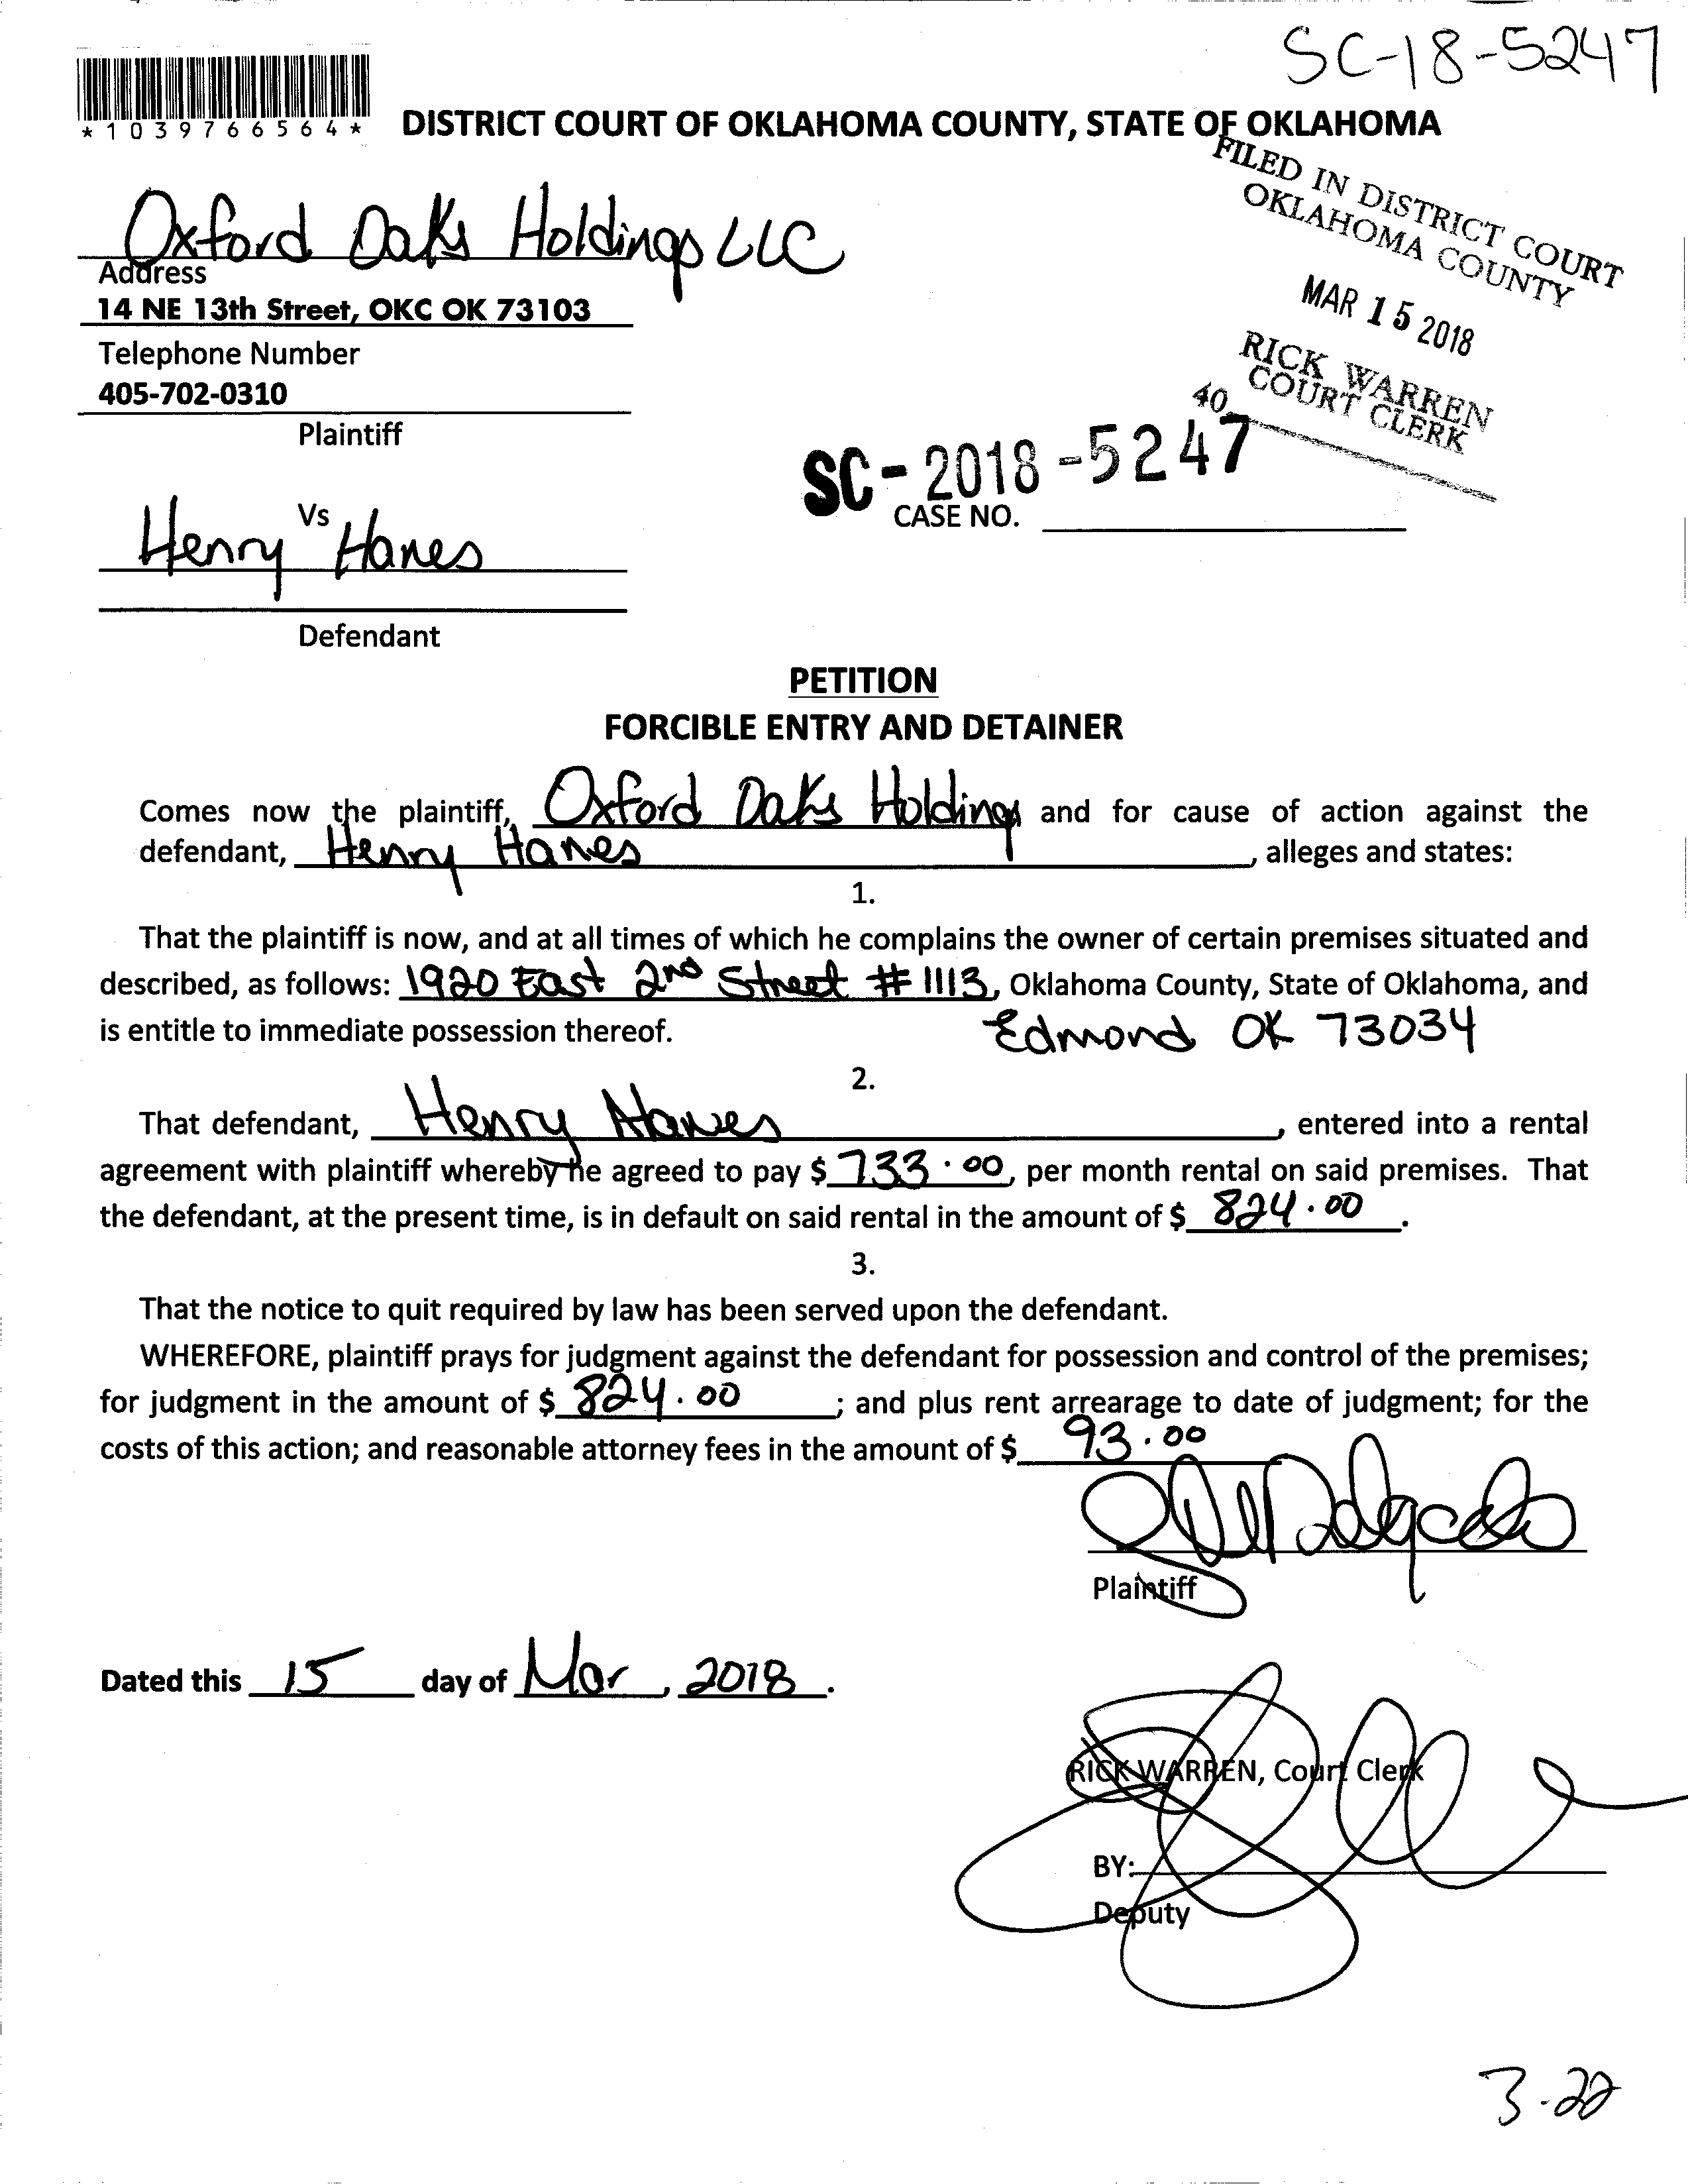 SC-18-5247
*1039766564*
DISTRICT COURT OF OKLAHOMA COUNTY, STATE OF OKLAHOMA
FILED IN DISTRICT COURT
OKLAHOMA COUNTY
MAR 15 2018
RICK WARREN
COURT CLERK
40
Oxford Oaks Holdings LLC
Address
14 NE 13th Street, OKC OK 73103
Telephone Number
405-702-0310
Plaintiff
SC-2018-5247
CASE NO.
Vs
Henry Hanes
Defendant
PETITION
FORCIBLE ENTRY AND DETAINER
Comes now the plaintiff, Oxford Oaks Holdings and for cause of action against the
defendant, Henry Hanes, alleges and states:
1.
That the plaintiff is now, and at all times of which he complains the owner of certain premises situated and
described, as follows: 1920 East 2nd Street # 1113, Oklahoma County, State of Oklahoma, and
is entitle to immediate possession thereof. Edmond OK 73034
2.
That defendant, Henry Hanes, entered into a rental
agreement with plaintiff whereby he agreed to pay $ 733.00, per month rental on said premises. That
the defendant, at the present time, is in default on said rental in the amount of $ 824.00.
3.
That the notice to quit required by law has been served upon the defendant.
WHEREFORE, plaintiff prays for judgment against the defendant for possession and control of the premises;
for judgment in the amount of $ 824.00; and plus rent arrearage to date of judgment; for the
costs of this action; and reasonable attorney fees in the amount of $ 93.00
Plaintiff
Dated this 15 day of Mar, 2018.
RICK WARREN, Court Clerk
BY:
Deputy